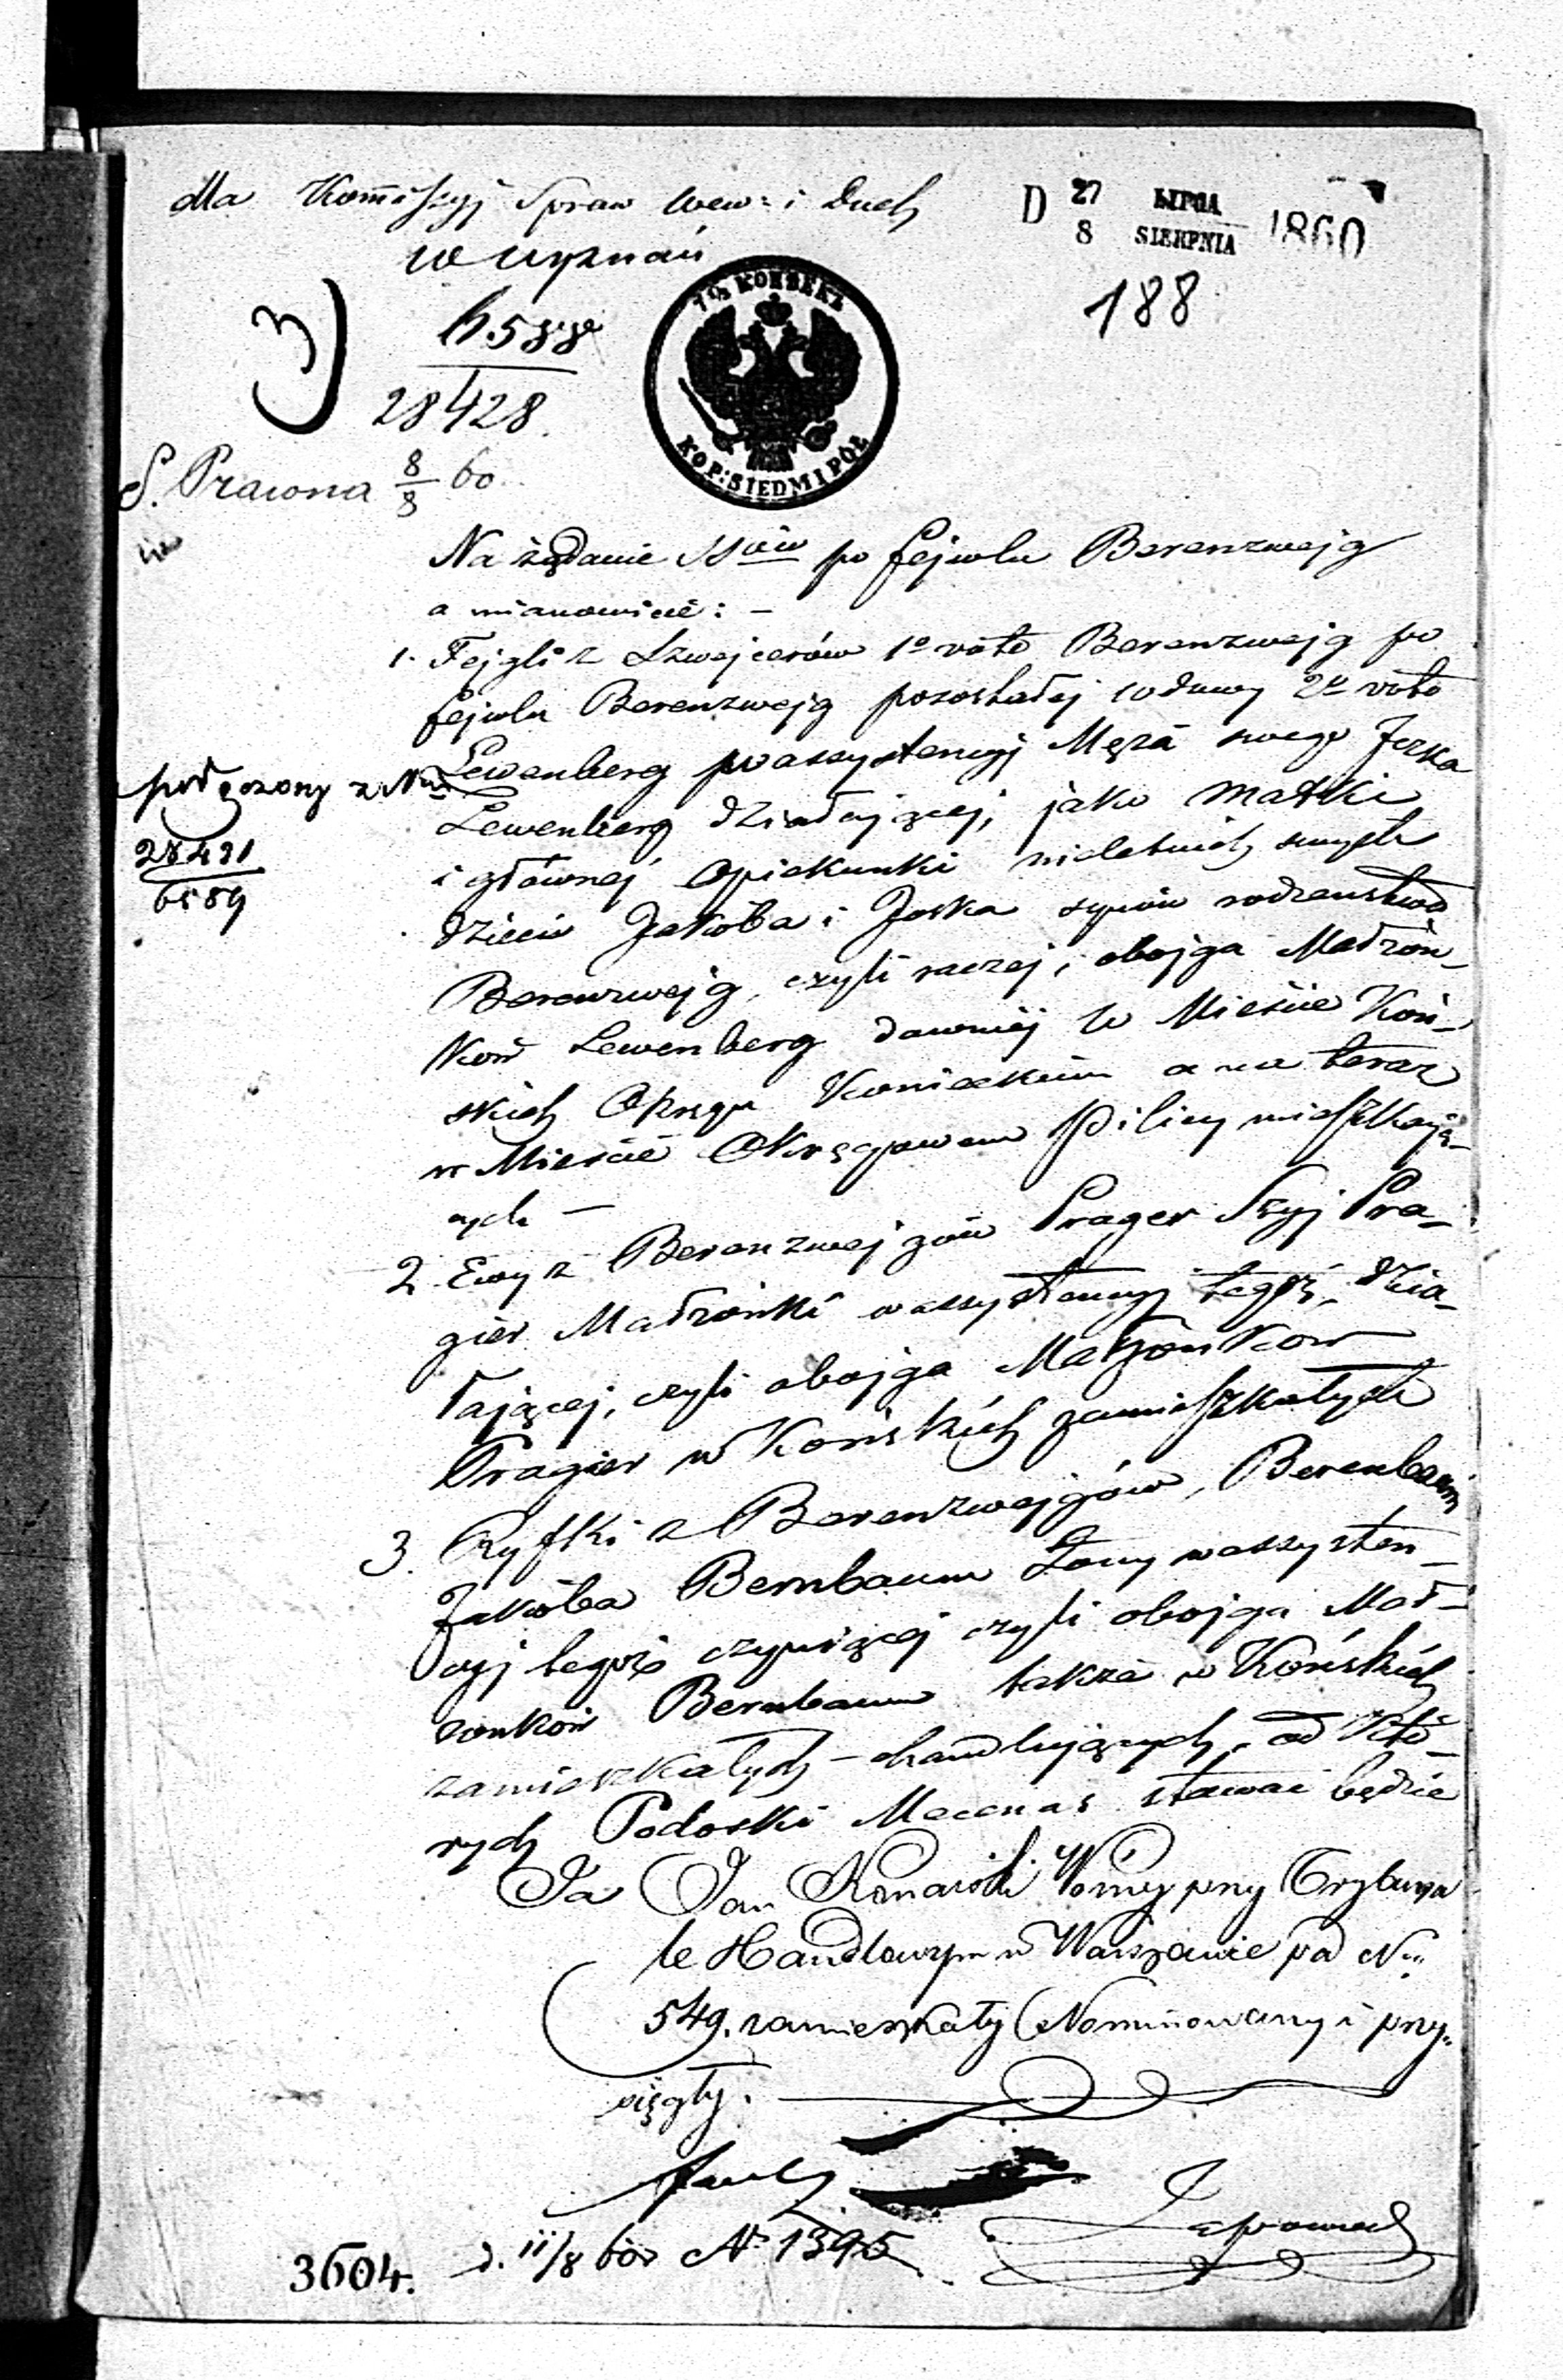 dla Kommissyj Spraw Wew: i Duch
Wyznań
D 27 LIPCA
8 SIERPNIA 1860
188
3)
6588
28428
7½ KOP SREBREM
KOP: SIEDM I PÓŁ
S. Prawna 8/8 60
Na żądanie SSów po Fejwlu Berenzwejg
a mianowicie: –
1. Fejgli z Szwejcerów 1o voto Berenzwejg po
Fejwlu Berenzwejg pozostałej wdowy 2o voto
Lewenberg w assystencyj Męża swego Jcka
Lewenberg działającej, jako Matki
i głównej Opiekunki nieletnich swych
dzieci Jakóba i Joska synów rodzeństwa
Berenzwejg, czyli raczej, obojga Małżon-
ków Lewenberg dawniej w Mieście Koń-
skich Okręgu Koneckim a na teraz
w Mieście Okręgowem Pilicy mieszkają-
cych –
2. Ewy z Berenzwejgów Prager Szyj Pra-
gier Małżonki w assystencyj tegoż, dzia-
łającej, czyli obojga Małżonków
Pragier w Końskich zamieszkałych
3. Ryfki z Berenzwejgów, Berenbaum
Jakóba Bernbaum Żony w assysten-
cyj tegoż czyniącej czyli obojga Mał-
żonków Bernbaum także w Końskich
zamieszkałych – handlujących, od któ-
rych Podoski Mecenas stawać będzie
podłączony z Nrem
28431
6589
Ja Jan Konarski Woźny przy Trybuna
le Handlowym w Warszawie pod Nrm
549. zamieszkały Nominowany i przy-
sięgły.
d. 11/8 60r No 1395
3604.